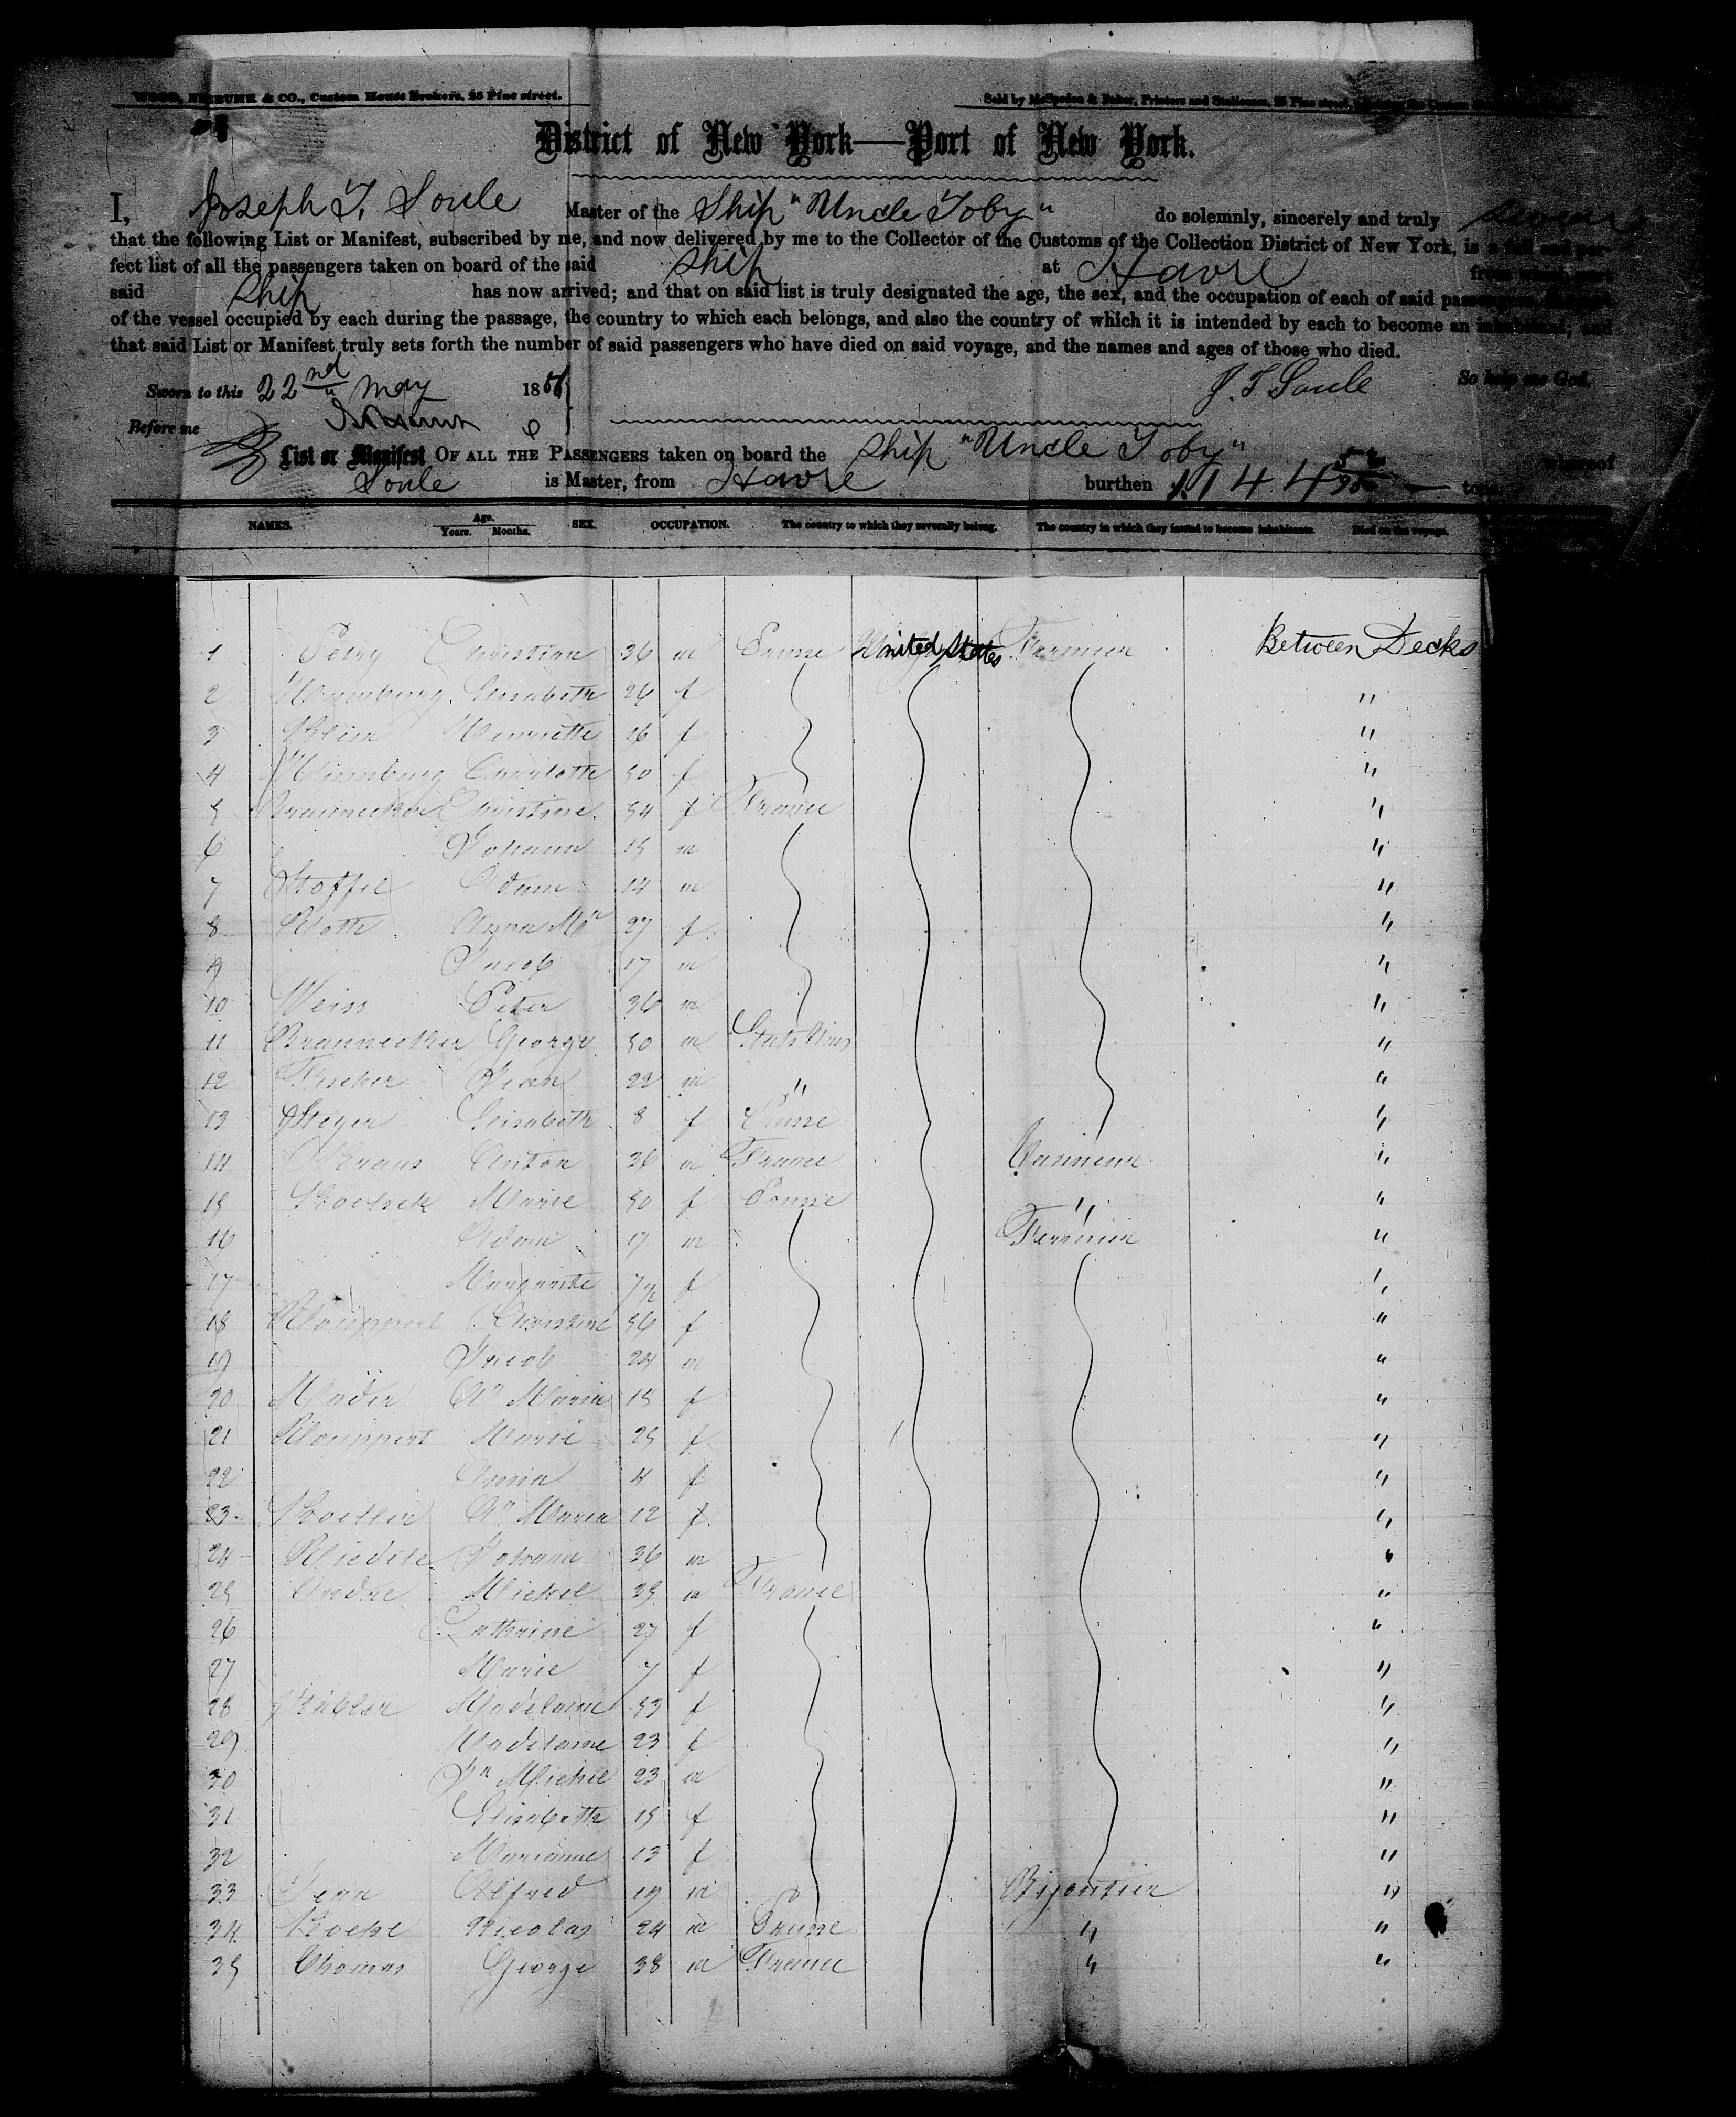 WOOD, & CO., Custom House Brokers, 25 Pine street.
Sold by & Baker, Printers and Stationers, 25 Pine street,
District of New York—Port of New York.
I, Joseph T. Soule Master of the Ship "Uncle Toby" do solemnly, sincerely and truly swear
that the following List or Manifest, subscribed by me, and now delivered by me to the Collector of the Customs of the Collection District of New York, is a full and per-
fect list of all the passengers taken on board of the said ship at Havre from which port
said ship has now arrived; and that on said list is truly designated the age, the sex, and the occupation of each of said passengers,
of the vessel occupied by each during the passage, the country to which each belongs, and also the country of which it is intended by each to become an inhabitant; and
that said List or Manifest truly sets forth the number of said passengers who have died on said voyage, and the names and ages of those who died.
Sworn to this 22nd May 185 J. T. Soule So help me God.
Before me
List or Manifest OF ALL THE PASSENGERS taken on board the ship "Uncle Toby" whereof
Soule is Master, from Havre burthen 1144 tons
NAMES. Age. Years. Months. SEX. OCCUPATION. The country to which they severally belong. The country in which they intend to become inhabitants. Died on the voyage.
1 Petry Christian 36 m Prusse United States Fermier Between Decks
2 Elisabeth 26 f "
3 Klein Henriette 16 f "
4 Charlotte 50 f "
5 Braunecker Christine 54 f France "
6 Johann 15 m "
7 Stoffel Adam 14 m "
8 Roth Anna Ma 27 f "
9 Jacob 17 m "
10 Weiss Peter 36 m "
11 Braunecker George 50 m Etats Unis "
12 Fischer Jean 22 m " "
13 Steyer Elisabeth 8 f Prusse "
14 Kraus Anton 36 m France Tanneur "
15 Marie 50 f Prusse " "
16 Adam 17 m Fermier "
17 Marguerite 7 f "
18 Christine 56 f "
19 Jacob 24 m "
20 Mader An Maria 15 f "
21 Marie 25 f "
22 Anna 4 f "
23 An Maria 12 f "
24 Johann 36 m "
25 Andre Michel 25 m France "
26 Cathrine 27 f "
27 Marie 7 f "
28 Madelaine 53 f "
29 Madelaine 23 f "
30 Jn Michel 23 m "
31 Elisabeth 15 f "
32 Marianne 13 f "
33 Alfred 19 m Bijoutier "
34 Nicolas 24 m Prusse " "
35 Thomas George 38 m France " "